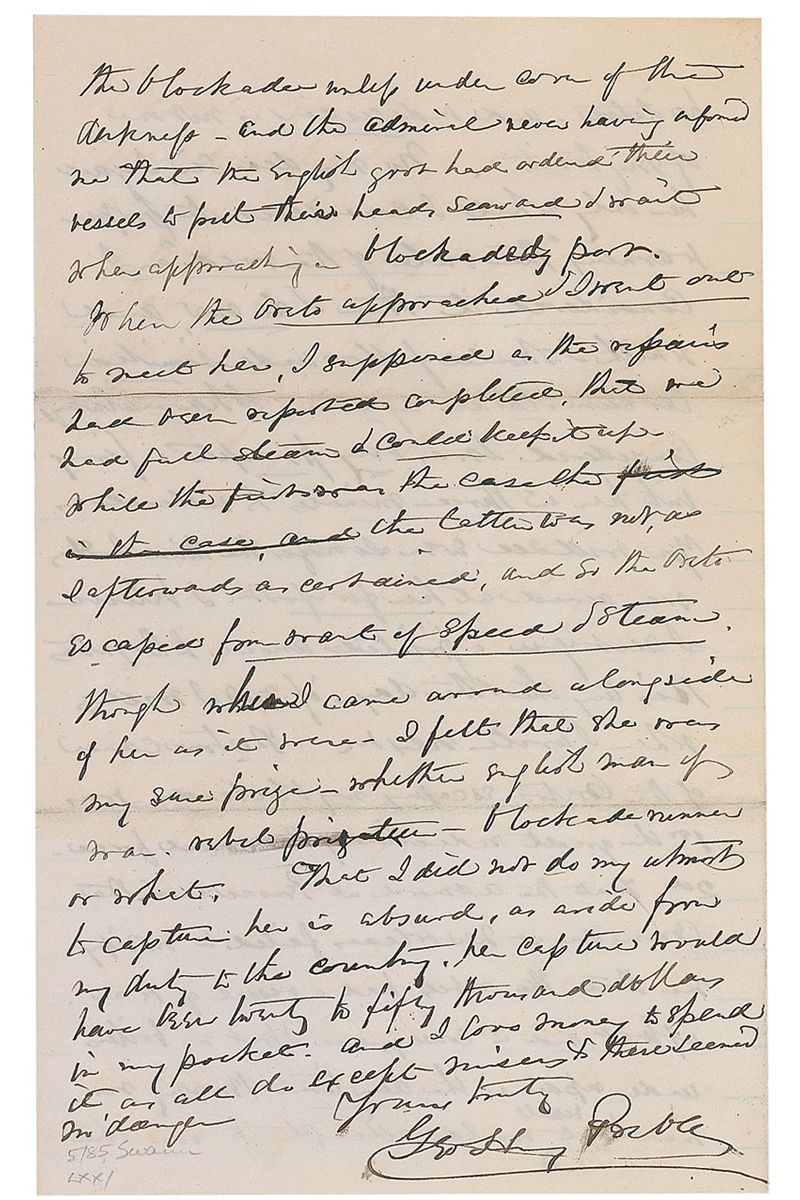 the blockade unless under cover of the
darkness - and the admiral never having informed
me that the English govt had ordered their
vessels to put their heads seaward & wait
when approaching a blockaded port.
When the Oreto approached & I went out
to meet her, I supposed as the repairs
had been reported completed, that we
had full steam & could keep it up
while the first was the case the first
is the case, and the latter was not, as
I afterwards ascertained, and so the Oreto
escaped from want of speed & steam.
though when I came around alongside
of her as it were - I felt that she was
my sure prize - whether English man of
war. rebel privateer - blockade runner
or what. That I did not do my utmost
to capture her is absurd, as aside from
my duty to the country, her capture would
have been twenty to fifty thousand dollars
in my pocket. And I love money to spend
it as all do except misers & there seemed
no danger
Yours truly
Geo H Preble
5185 Swann
LXXI